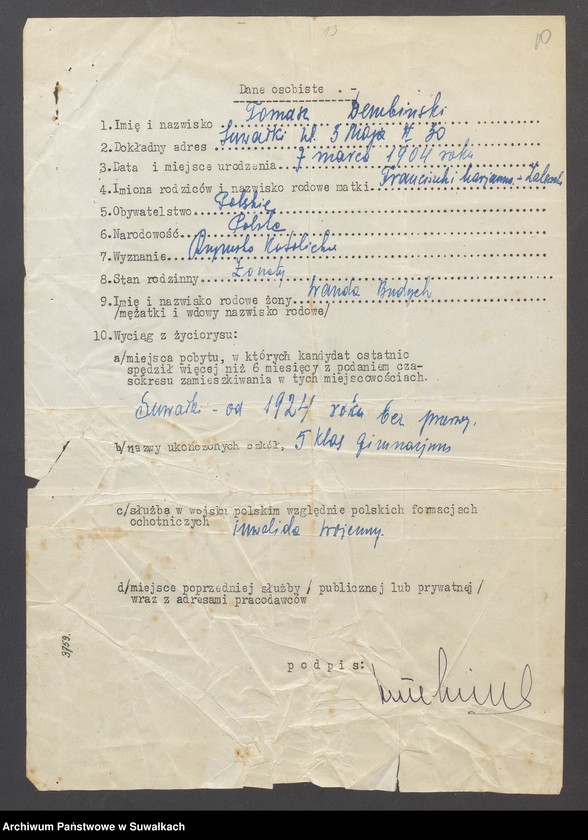 13
10
Dane osobiste . -
1. Imię i nazwisko Tomasz Dembiński
2. Dokładny adres Suwałki ul. 3 Maja # 30
3. Data i miejsce urodzenia 7 marca 1904 roku
4. Imiona rodziców i nazwisko rodowe matki Franciszek i Marjanna
5. Obywatelstwo Polskie
6. Narodowość Polska
7. Wyznanie Rzymsko Katolickie
8. Stan rodzinny Żonaty
9. Imię i nazwisko rodowe żony Wanda
/mężatki i wdowy nazwisko rodowe/
10. Wyciąg z życiorysu:
a/miejsca pobytu, w których kandydat ostatnio
spędził więcej niż 6 miesięcy z podaniem cza-
sokresu zamieszkiwania w tych miejscowościach.
Suwałki - od 1924 roku bez przerwy.
b/nazwy ukończonych szkół, 5 klas gimnazjum
c/służba w wojsku polskim względnie polskich formacjach
ochotniczych inwalida wojenny.
d/miejsce poprzedniej służby / publicznej lub prywatnej/
wraz z adresami pracodawców
3759.
podpis:
Archiwum Państwowe w Suwałkach